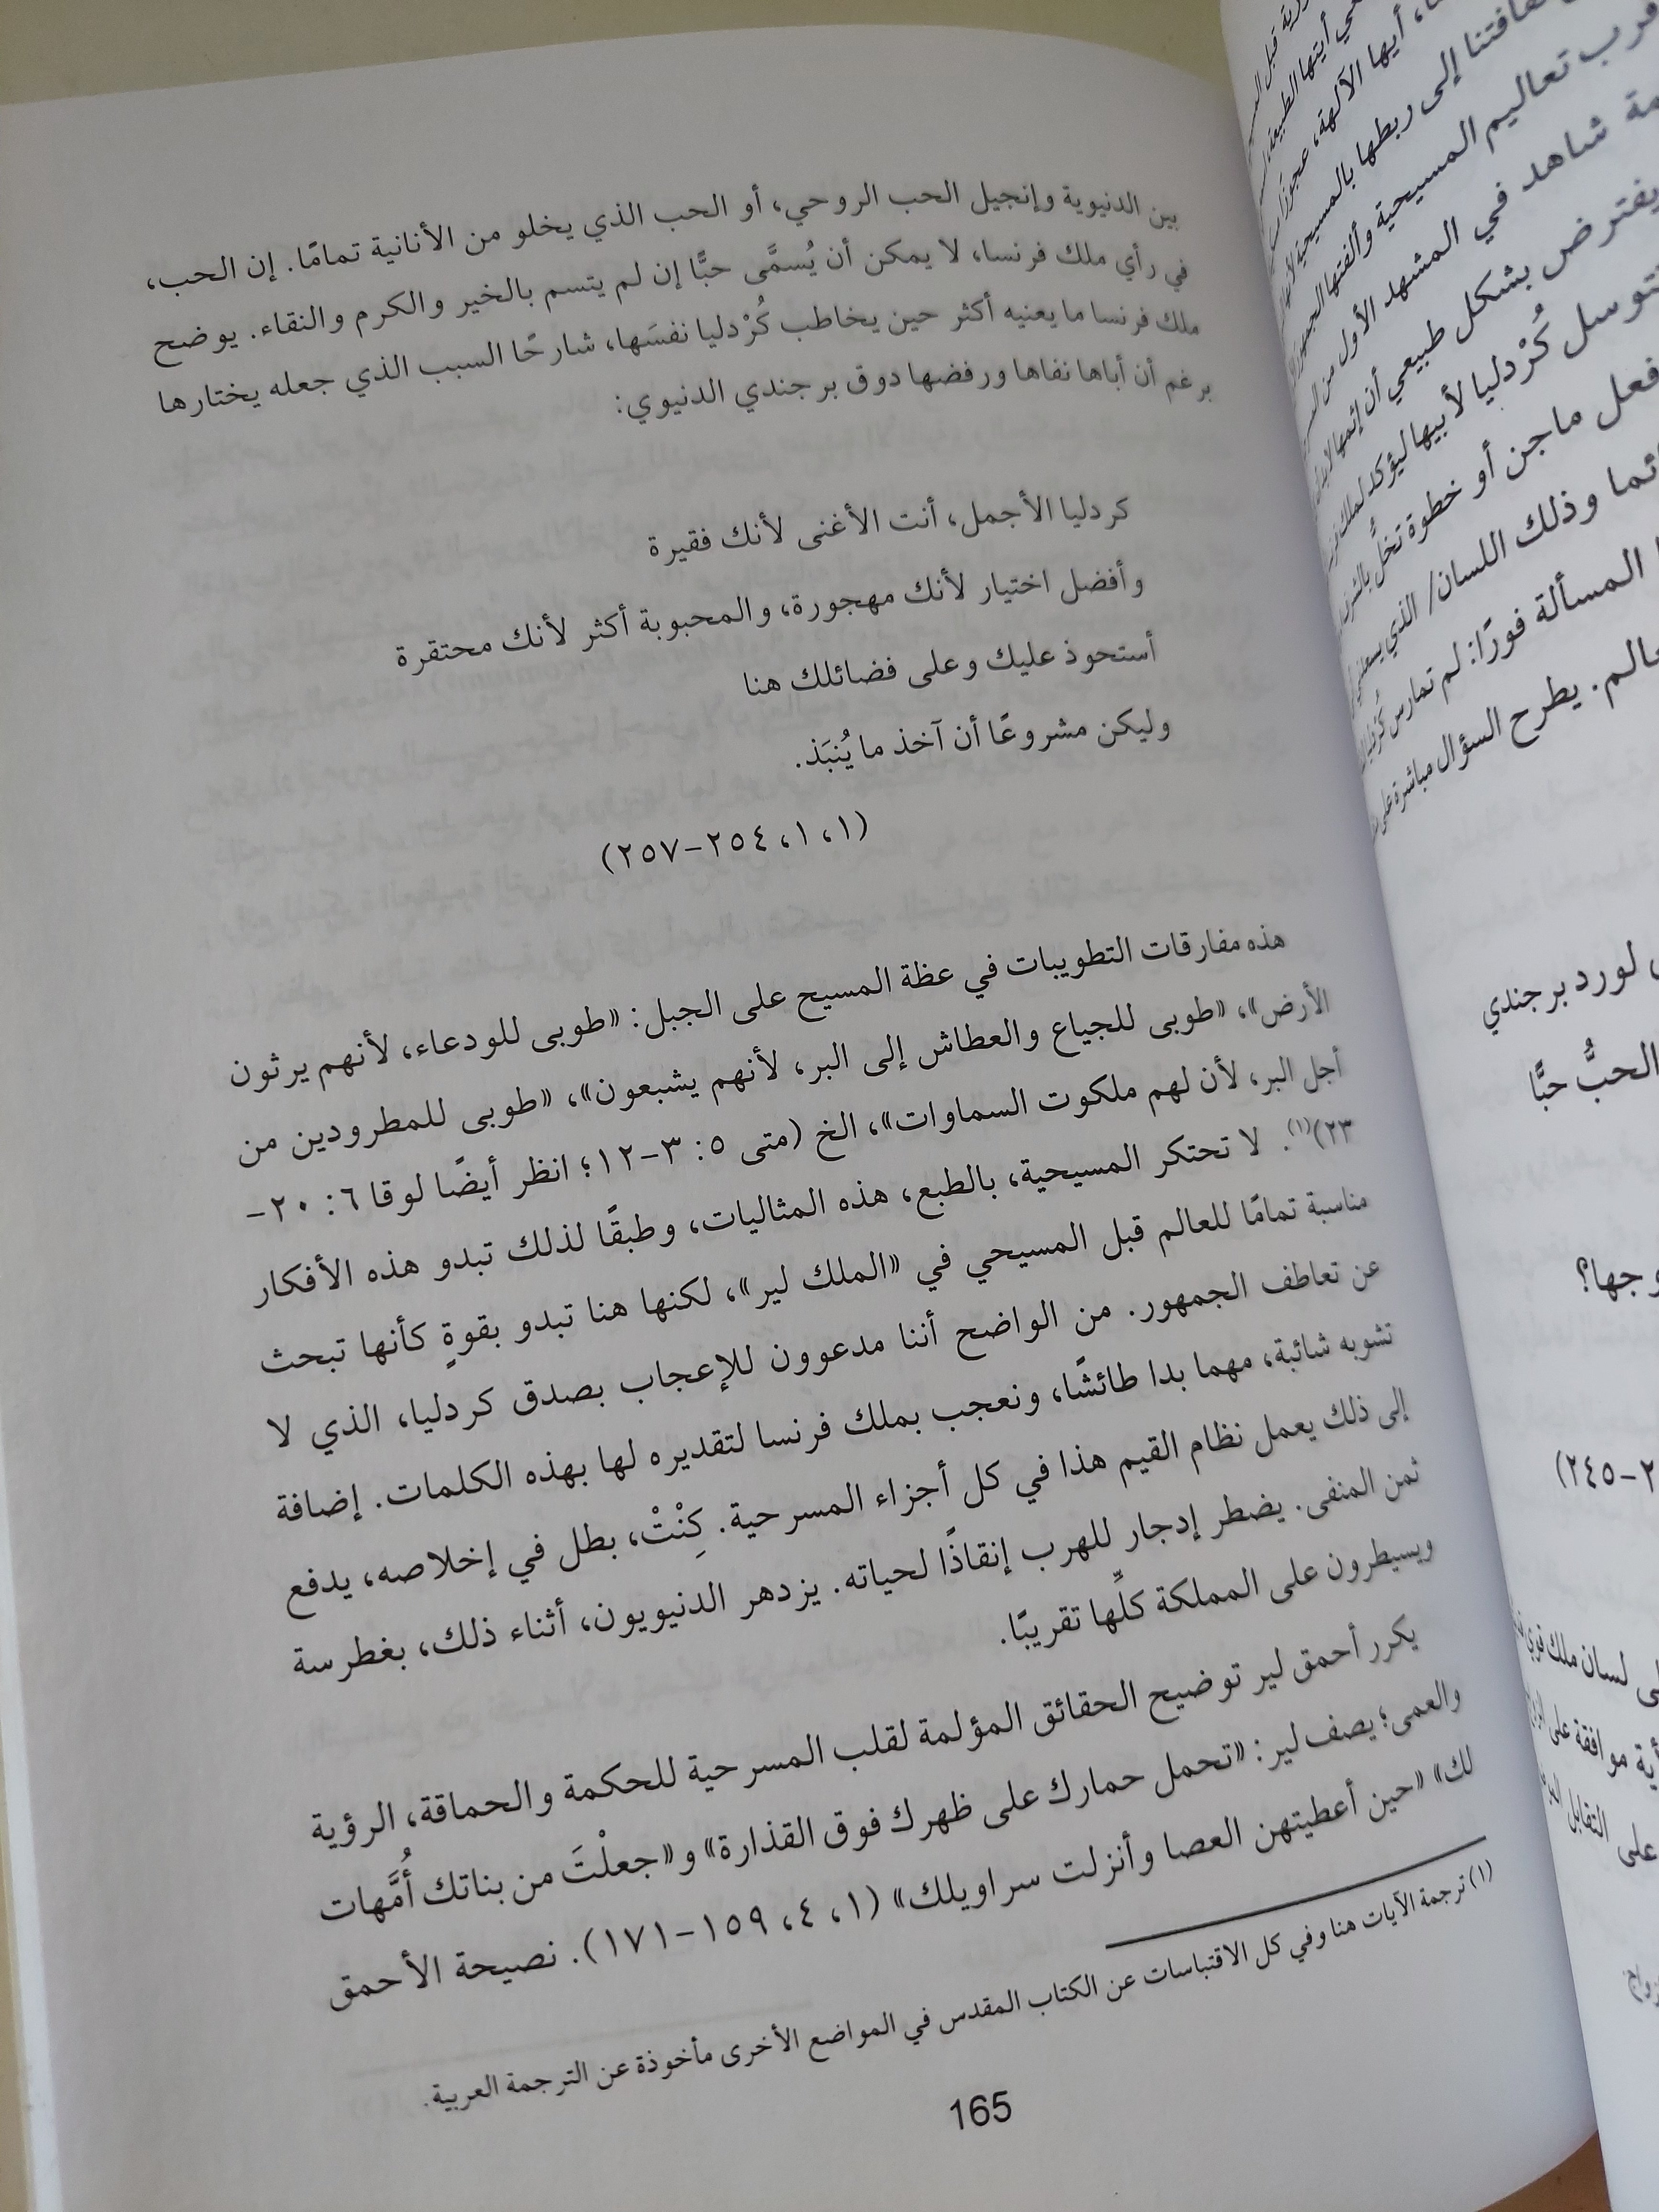 بين الدنيوية وإنجيل الحب الروحي، أو الحب الذي يخلو من الأنانية تمامًا. إن الحب،
في رأي ملك فرنسا، لا يمكن أن يُسمَّى حبًّا إن لم يتسم بالخير والكرم والنقاء. يوضح
ملك فرنسا ما يعنيه أكثر حين يخاطب كُرْدليا نفسَها، شارحًا السبب الذي جعله يختارها
برغم أن أباها نفاها ورفضها دوق برجندي الدنيوي:
كردليا الأجمل، أنت الأغنى لأنك فقيرة
وأفضل اختيار لأنك مهجورة، والمحبوبة أكثر لأنك محتقرة
أستحوذ عليك وعلى فضائلك هنا
وليكن مشروعًا أن آخذ ما يُنبَذ.
(١، ١، ٢٥٤-٢٥٧)
هذه مفارقات التطويبات في عظة المسيح على الجبل: «طوبى للودعاء، لأنهم يرثون
الأرض»، «طوبى للجياع والعطاش إلى البر، لأنهم يشبعون»، «طوبى للمطرودين من
أجل البر، لأن لهم ملكوت السماوات»، الخ (متى ٥: ٣-١٢؛ انظر أيضًا لوقا ٦: ٢٠-
٢٣)(١). لا تحتكر المسيحية، بالطبع، هذه المثاليات، وطبقًا لذلك تبدو هذه الأفكار
مناسبة تمامًا للعالم قبل المسيحي في «الملك لير»، لكنها هنا تبدو بقوةٍ كأنها تبحث
عن تعاطف الجمهور. من الواضح أننا مدعوون للإعجاب بصدق كردليا، الذي لا
تشوبه شائبة، مهما بدا طائشًا، ونعجب بملك فرنسا لتقديره لها بهذه الكلمات. إضافة
إلى ذلك يعمل نظام القيم هذا في كل أجزاء المسرحية. كِنْتْ، بطل في إخلاصه، يدفع
ثمن المنفى. يضطر إدجار للهرب إنقاذًا لحياته. يزدهر الدنيويون، أثناء ذلك، بغطرسة
ويسيطرون على المملكة كلِّها تقريبًا.
يكرر أحمق لير توضيح الحقائق المؤلمة لقلب المسرحية للحكمة والحماقة، الرؤية
والعمى؛ يصف لير: «تحمل حمارك على ظهرك فوق القذارة» و«جعلْتَ من بناتك أُمَّهات
لك» «حين أعطيتهن العصا وأنزلت سراويلك» (١، ٤، ١٥٩-١٧١). نصيحة الأحمق
(١) ترجمة الآيات هنا وفي كل الاقتباسات عن الكتاب المقدس في المواضع الأخرى مأخوذة عن الترجمة العربية.
165
أيها الآلهة،
إلى ربطها
تعاليم المسيحية وألفتها
شاهد في المشهد الأول من
يفترض بشكل طبيعي أن
تتوسل كُرْدليا لأبيها ليؤكد
فعل ماجن أو خطوة تخلُّ
وذلك اللسان/ الذي
المسألة فورًا: لم تمارس
يطرح السؤال مباشرة على
لورد برجندي
الحبُّ حبًّا
لسان ملك
موافقة على
على التقابل